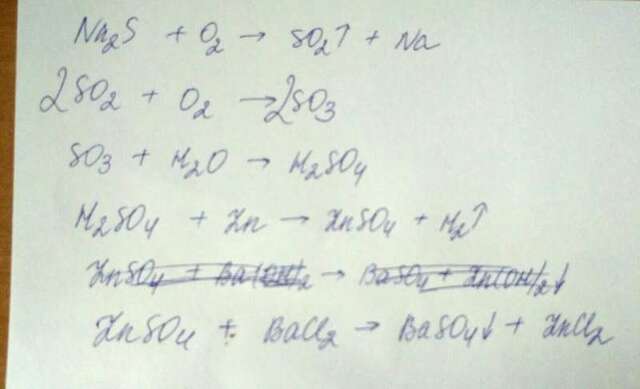 Na₂S + O₂ → SO₂↑ + Na
2SO₂ + O₂ → 2SO₃
SO₃ + H₂O → H₂SO₄
H₂SO₄ + Zn → ZnSO₄ + H₂↑
ZnSO₄ + Ba(OH)₂ → BaSO₄ + Zn(OH)₂↓
ZnSO₄ + BaCl₂ → BaSO₄↓ + ZnCl₂